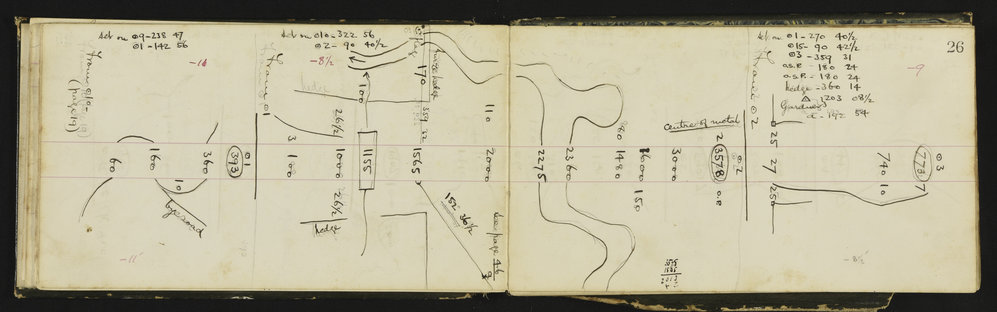 Set on 09-238 47
01-142 56
-11
From 010-
(page 19)
60
160
10
360
393
01
bye road
-11
Set on 010-322 56
02-90 40½
-8½
From 01
3
100
hedge
26½
1000
26½
hedge
100
1155
170
1565
152 36½
110
2000
See page 46
2275
2360
980
1480
1600
150
3000
centre of metal
2
3578
02
26
Set on 01-270 40½
015-90 42½
03-359 31
O.S.P. -180 24
O.S.P. -180 24
hedge -360 14
△ 1203 08½
Gardner's
-9
From 02
25
27
250
740
10
773
7
03
-8½